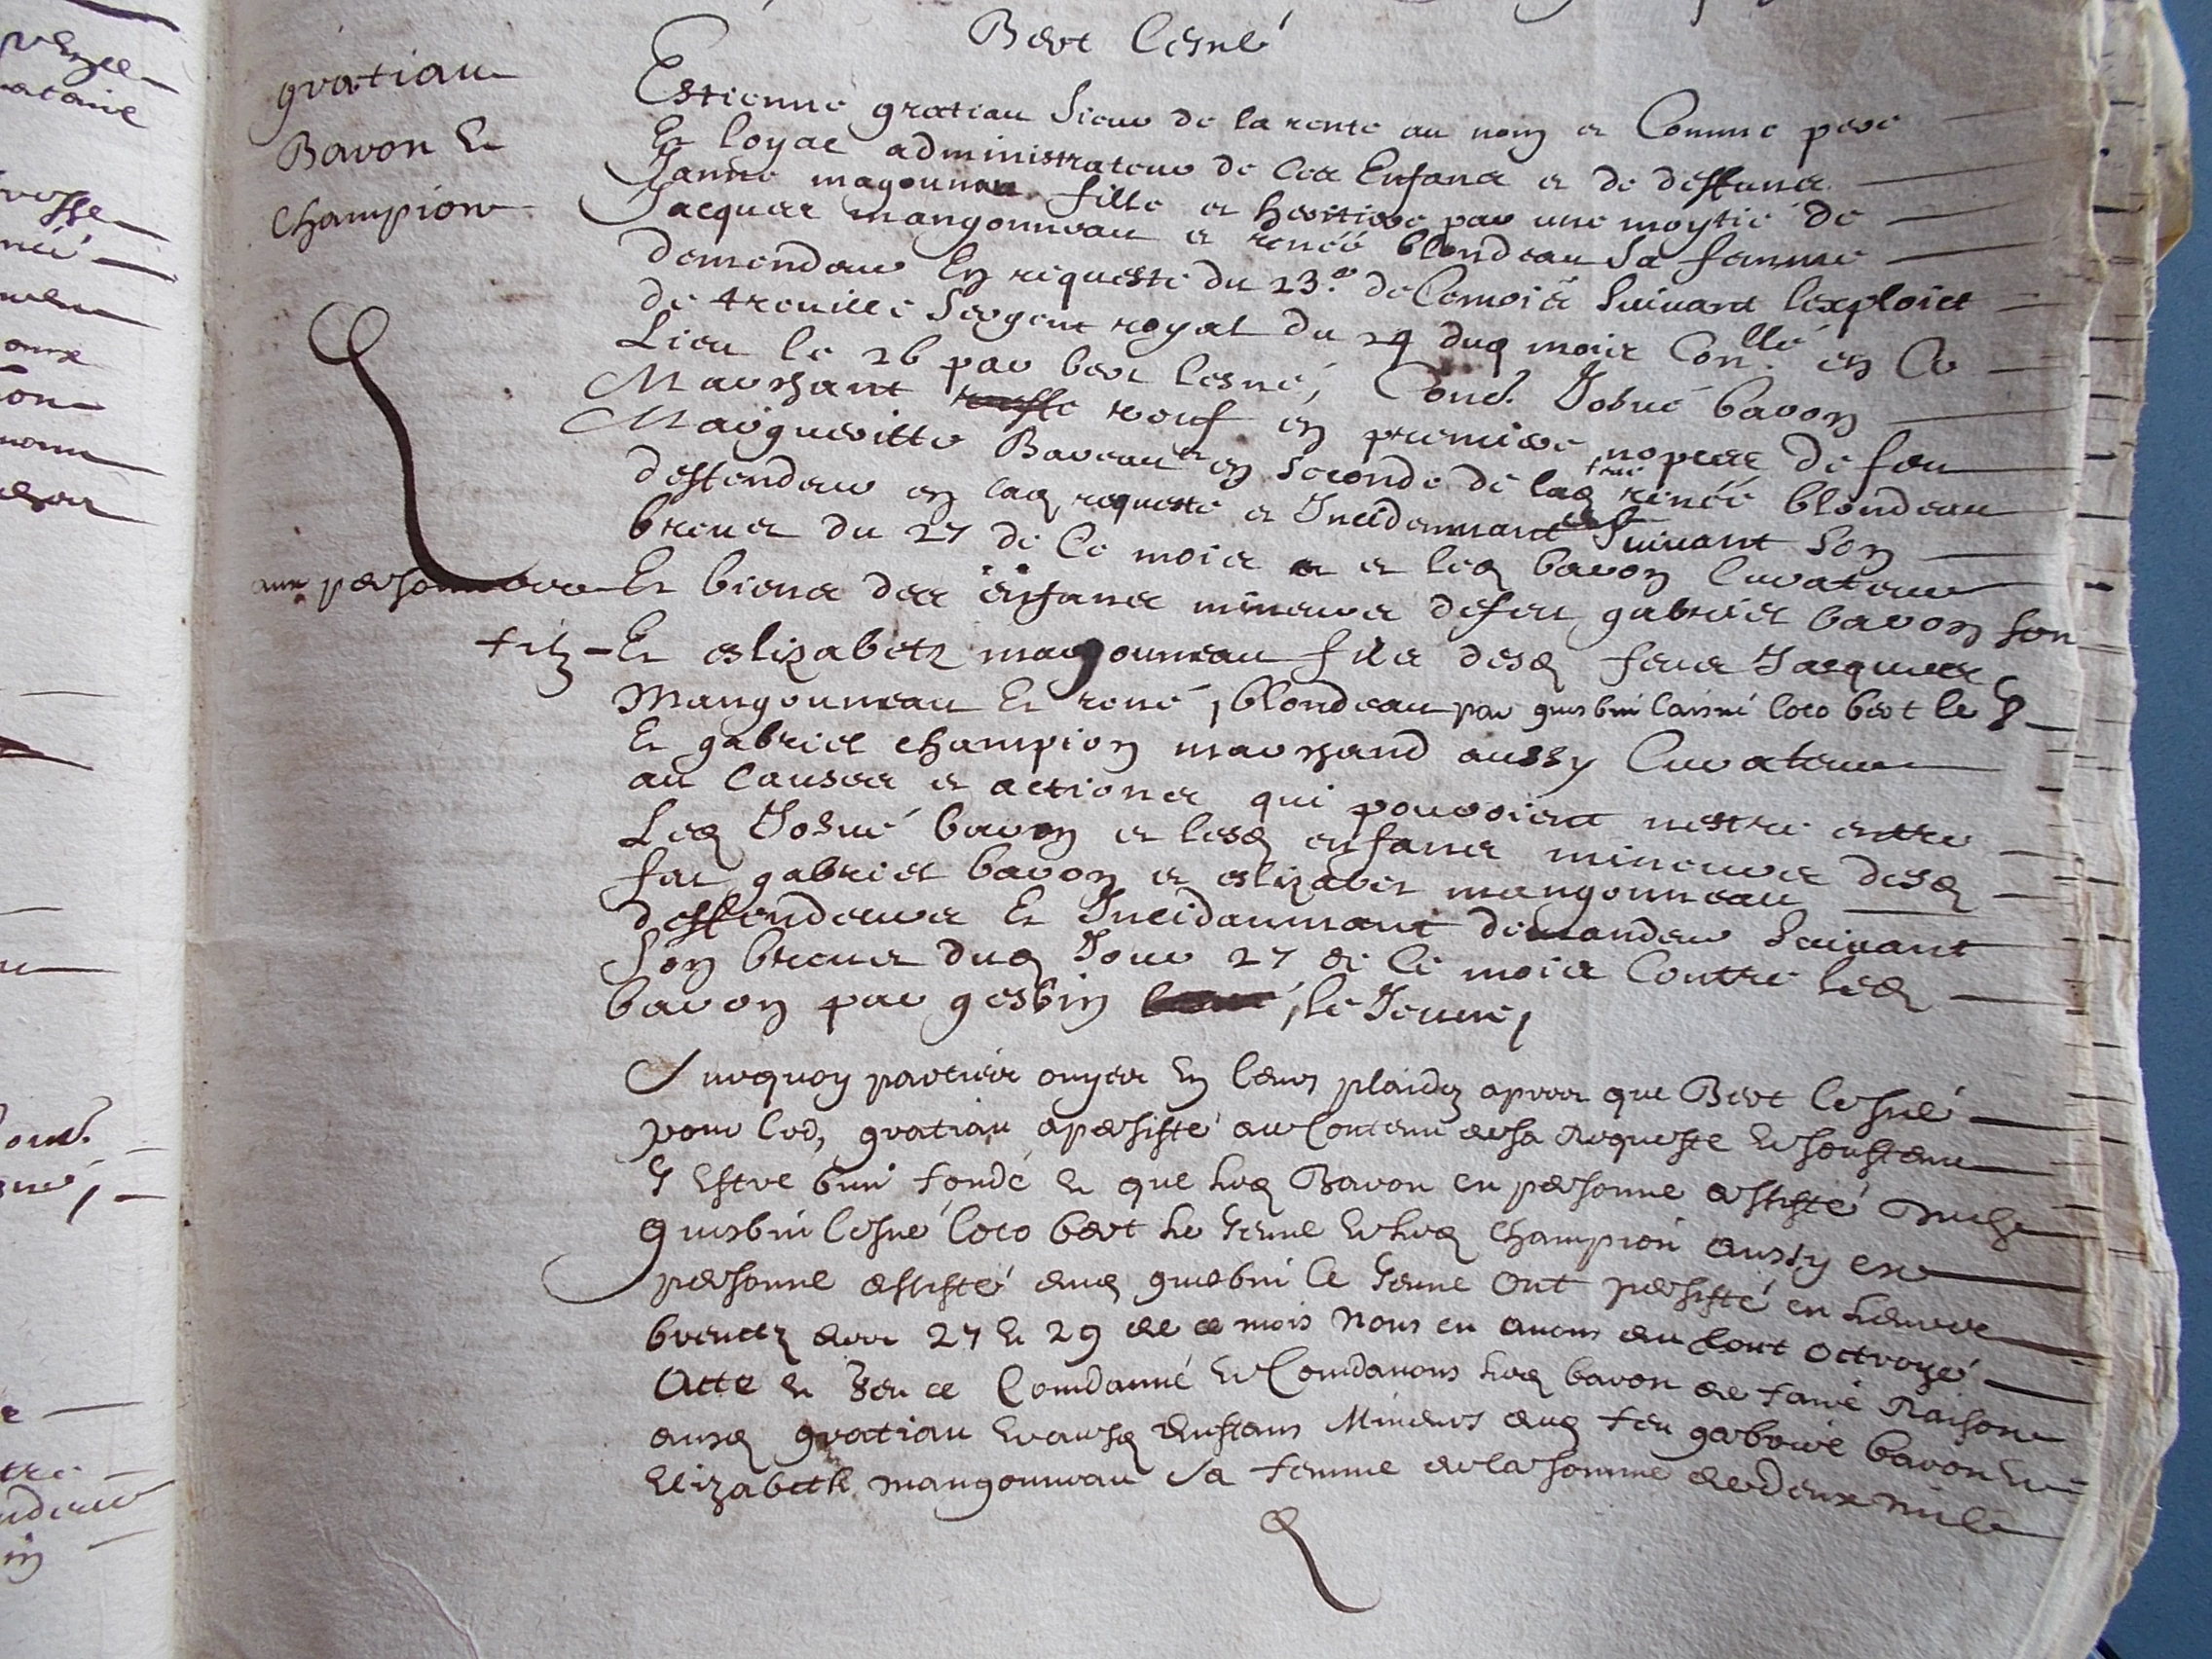 Bert Lesné
gratiau
Baron et
Champion
Estienne gratiau Sieur de la rente au nom et Comme pere
Et loyal administrateur de ses Enfans et de deffuncte
Janne magounneau fille et heritiere par une moytié de
Jacques mangounneau et renée blondeau Sa femme
demendeur En requeste du 23.e de Ce mois Suivant lexploict
de Sergent royal du 24 dud mois Con.llé en Ce
Lieu le 26 par bert lesné, Cond. Josué baron
Marchant veuf en premiere nopces de feu
Margueritte Baveau et en Seconde de lad feue renée blondeau
deffendeur en lad requeste et Incidemmant Suivant Son
brevet du 27 de Ce mois et led baron Curateur
aux personnes Et biens des enfans mineurs defeu gabriel baron Son
filz Et eslizabetz magounneau filles desd feus Jacques
Mangounneau Et rené blondeau par guesbin laisné loco bert le J
Et gabriel champion marchand aussy Curateur
au Causes et actions qui pouroient nestre entre
Led Josué baron et lesd enfans mineurs desd
feu gabriel baron et eslizabet mangounneau
deffendeurs Et Incidammant demandeur Suivant
Son brevet dud Jour 27 de Ce mois Contre led
baron par gesbin le Jeune,
Surquoy parties ouyes En leurs plaidez apres que Bert Lesné
pour led, gratiau a persisté au Contenu de sa Requeste Et soustenu
y Estre bien fondé et que led Baron en personne assisté
guesbin lesné loco bert le Jeune Et led Champion aussy en
personne assisté dud guesbin le Jeune ont persisté en leurs
brevetz des 27 et 29 de ce mois Nous en avons du tout octroyé
Acte et Condanné Et Condanons led baron de faire Raison
aud gratiau Et ausd Enffans Mineurs dud feu gabriel baron Et
Elizabeth mangounneau Sa femme de la somme de deux mil